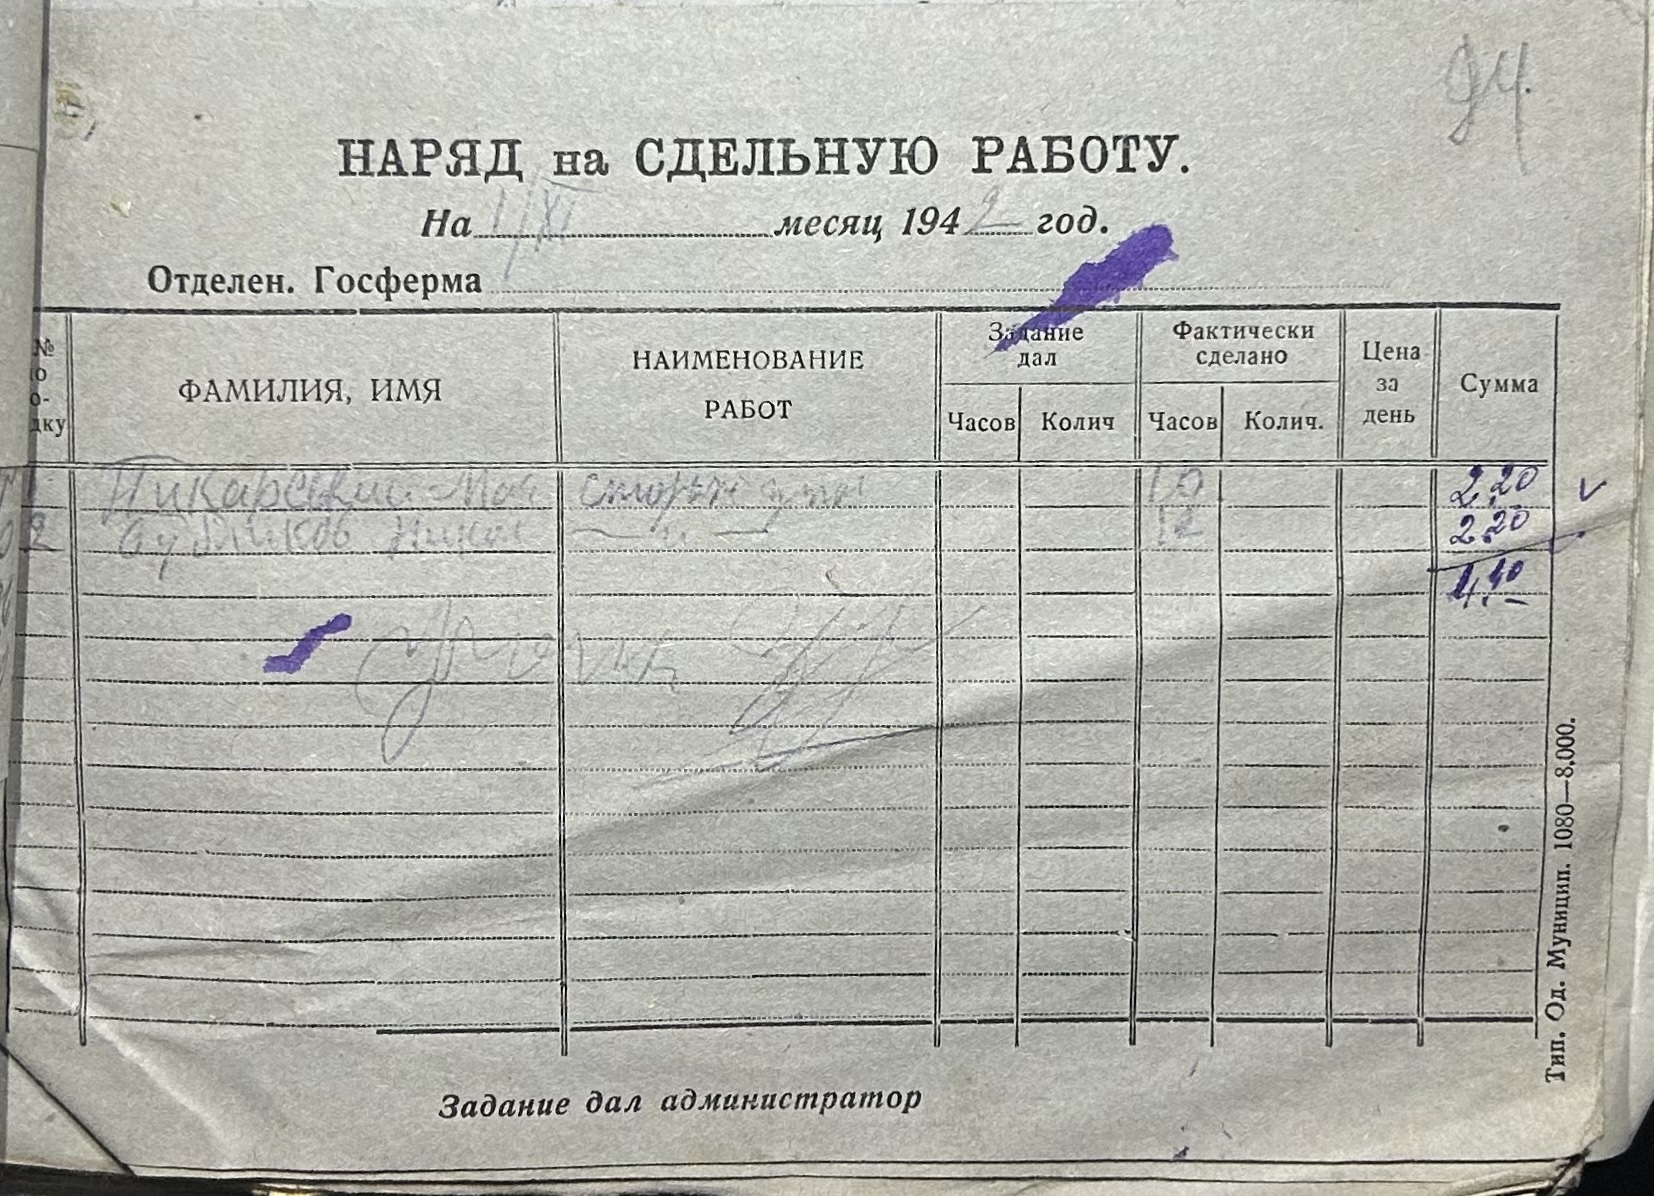 94.
НАРЯД на СДЕЛЬНУЮ РАБОТУ.
На 1/XI месяц 1942 год.
Отделен. Госферма
№ по по-дку ФАМИЛИЯ, ИМЯ НАИМЕНОВАНИЕ РАБОТ Задание дал Часов Колич Фактически сделано Часов Колич. Цена за день Сумма
1 Пикарский сторож 10 2,20
2 Бубликов Никол — " — 12 2,20
4,40
Задание дал администратор
Тип. Од. Муницип. 1080—8.000.